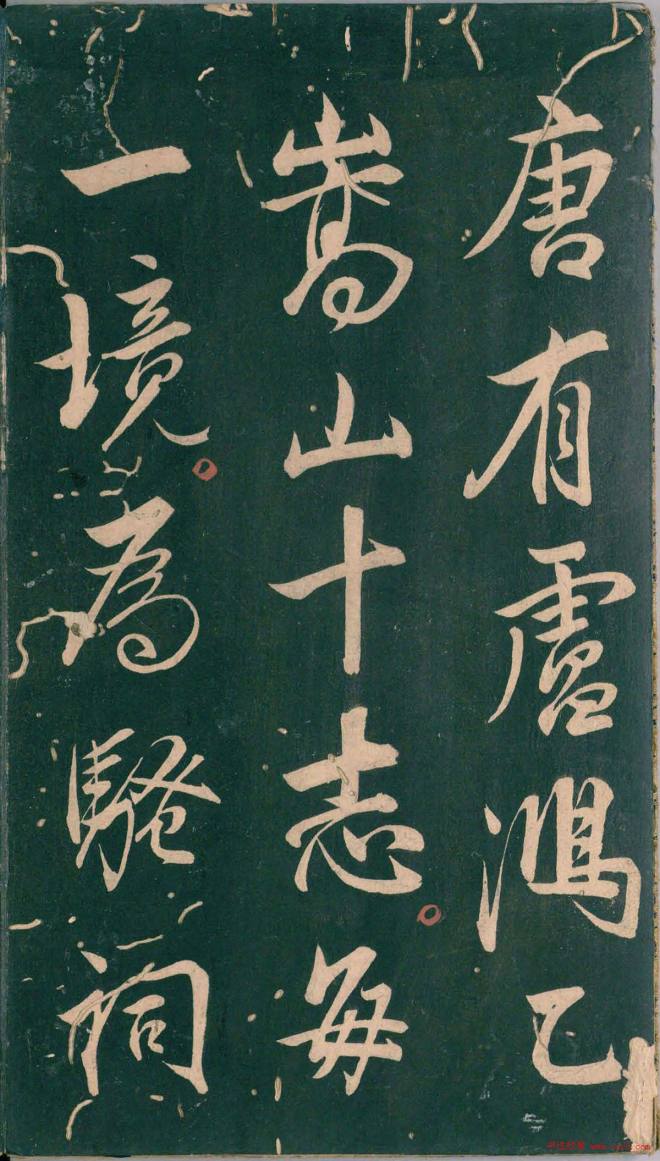 唐有盧鴻乙
嵩山十志每
一境為騷詞